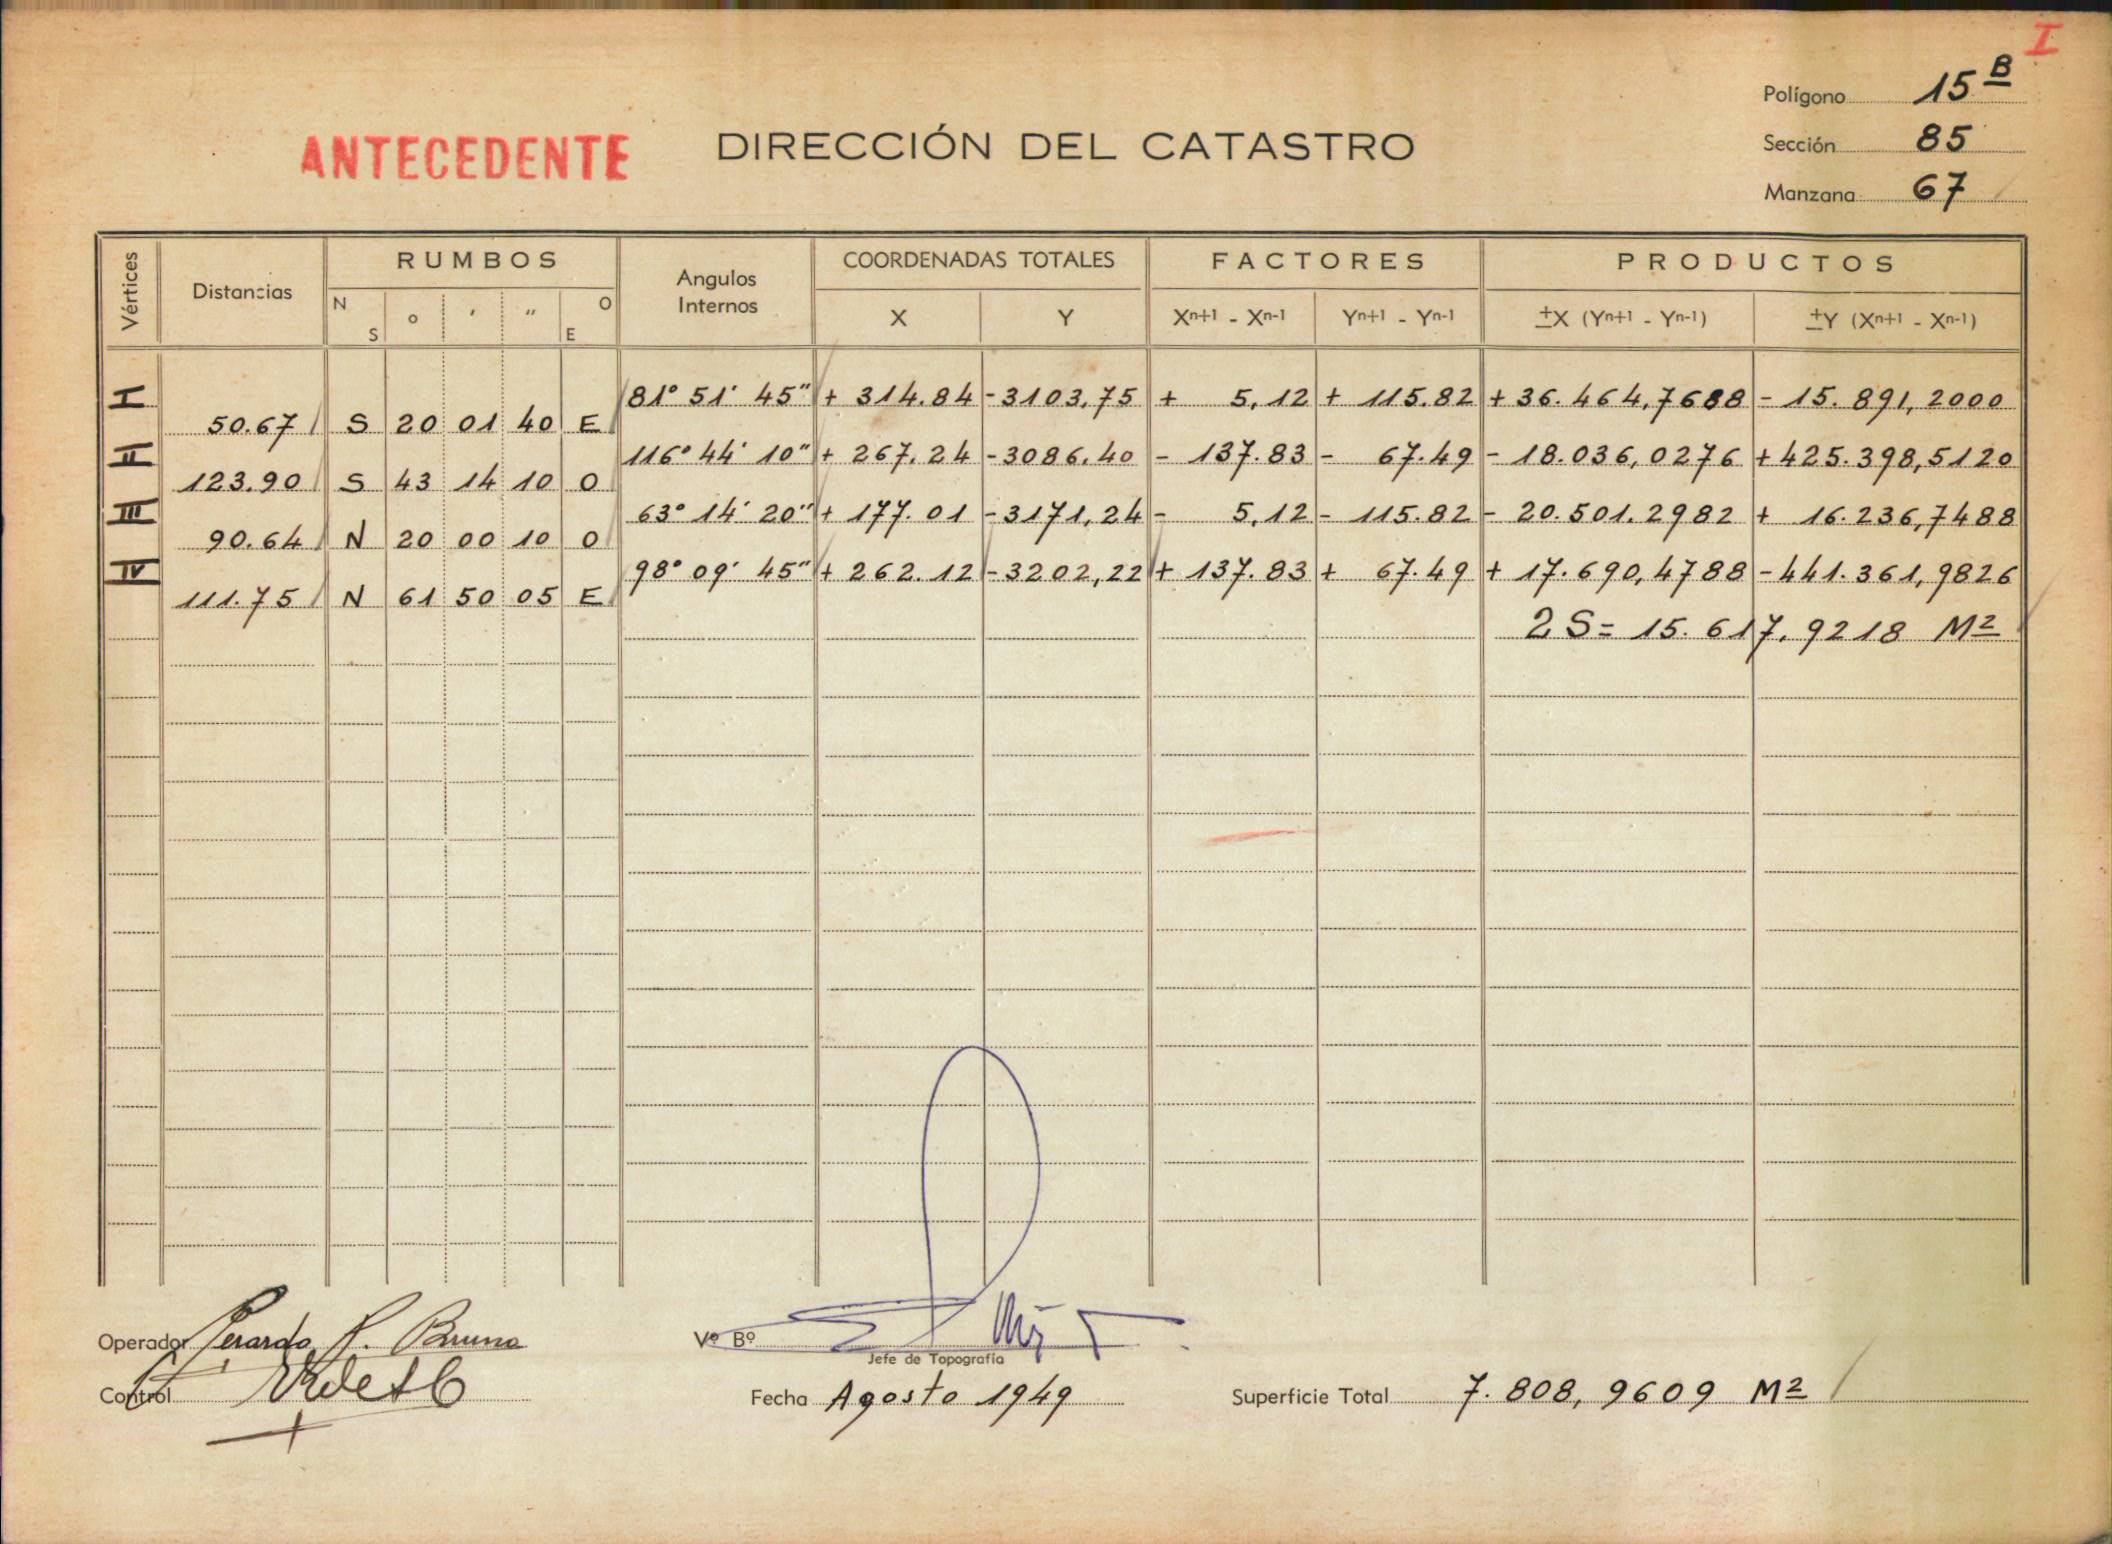 I
Polígono 15 B
ANTECEDENTE DIRECCIÓN DEL CATASTRO
Sección 85
Manzana 67
Vértices Distancias RUMBOS Angulos Internos COORDENADAS TOTALES FACTORES PRODUCTOS
N S o ′ ″ O E X Y Xn+1 - Xn-1 Yn+1 - Yn-1 ±X (Yn+1 - Yn-1) ±Y (Xn+1 - Xn-1)
I 81° 51′ 45″ + 314.84 -3103,75 + 5,12 + 115.82 + 36.464,7688 - 15.891,2000
50.67 S 20 01 40 E
II 116° 44′ 10″ + 267.24 -3086.40 - 137.83 - 67.49 - 18.036,0276 +425.398,5120
123.90 S 43 14 10 O
III 63° 14′ 20″ + 177.01 -3171,24 - 5,12 - 115.82 - 20.501.2982 + 16.236,7488
90.64 N 20 00 10 O
IV 98° 09′ 45″ + 262.12 -3202,22 + 137.83 + 67.49 + 17.690,4788 -441.361,9826
111.75 N 61 50 05 E
2 S= 15.617.9218 M2
Operador Gerardo R. Bruno
Vº Bº
Jefe de Topografía
Control
Fecha Agosto 1949
Superficie Total 7.808,9609 M2